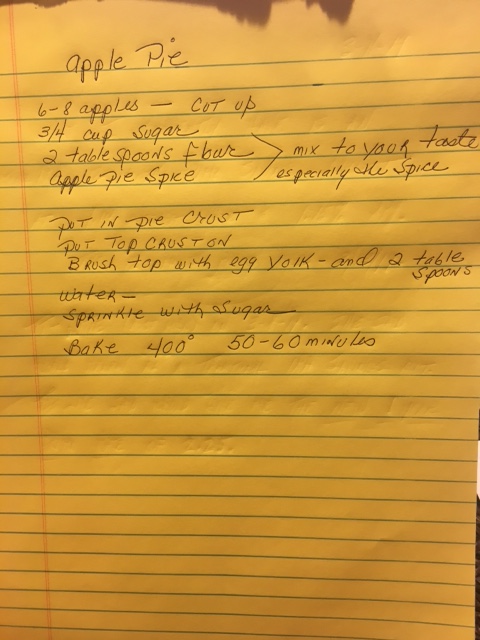 Apple Pie
6-8 apples — CUT up
3/4 cup Sugar
2 tablespoons flour > mix to your taste
Apple Pie Spice especially the Spice
PUT IN Pie CRUST
PUT TOP CRUST ON
BRush top with egg Yolk - and 2 table
Spoons
Water —
SPRINKLE with Sugar
Bake 400° 50-60 minutes